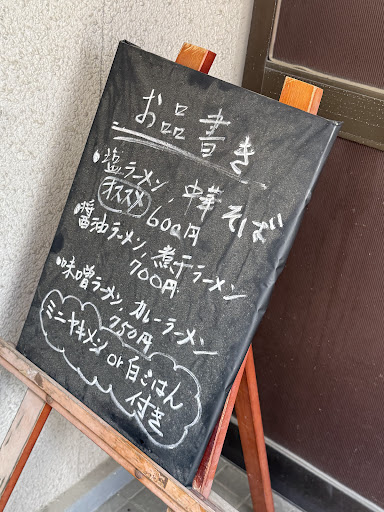 お品書き
・塩ラーメン、中華そば
オススメ 600円
醤油ラーメン、煮干ラーメン
700円
・味噌ラーメン、カレーラーメン
750円
ミニヤキメシ or 白ごはん
付き